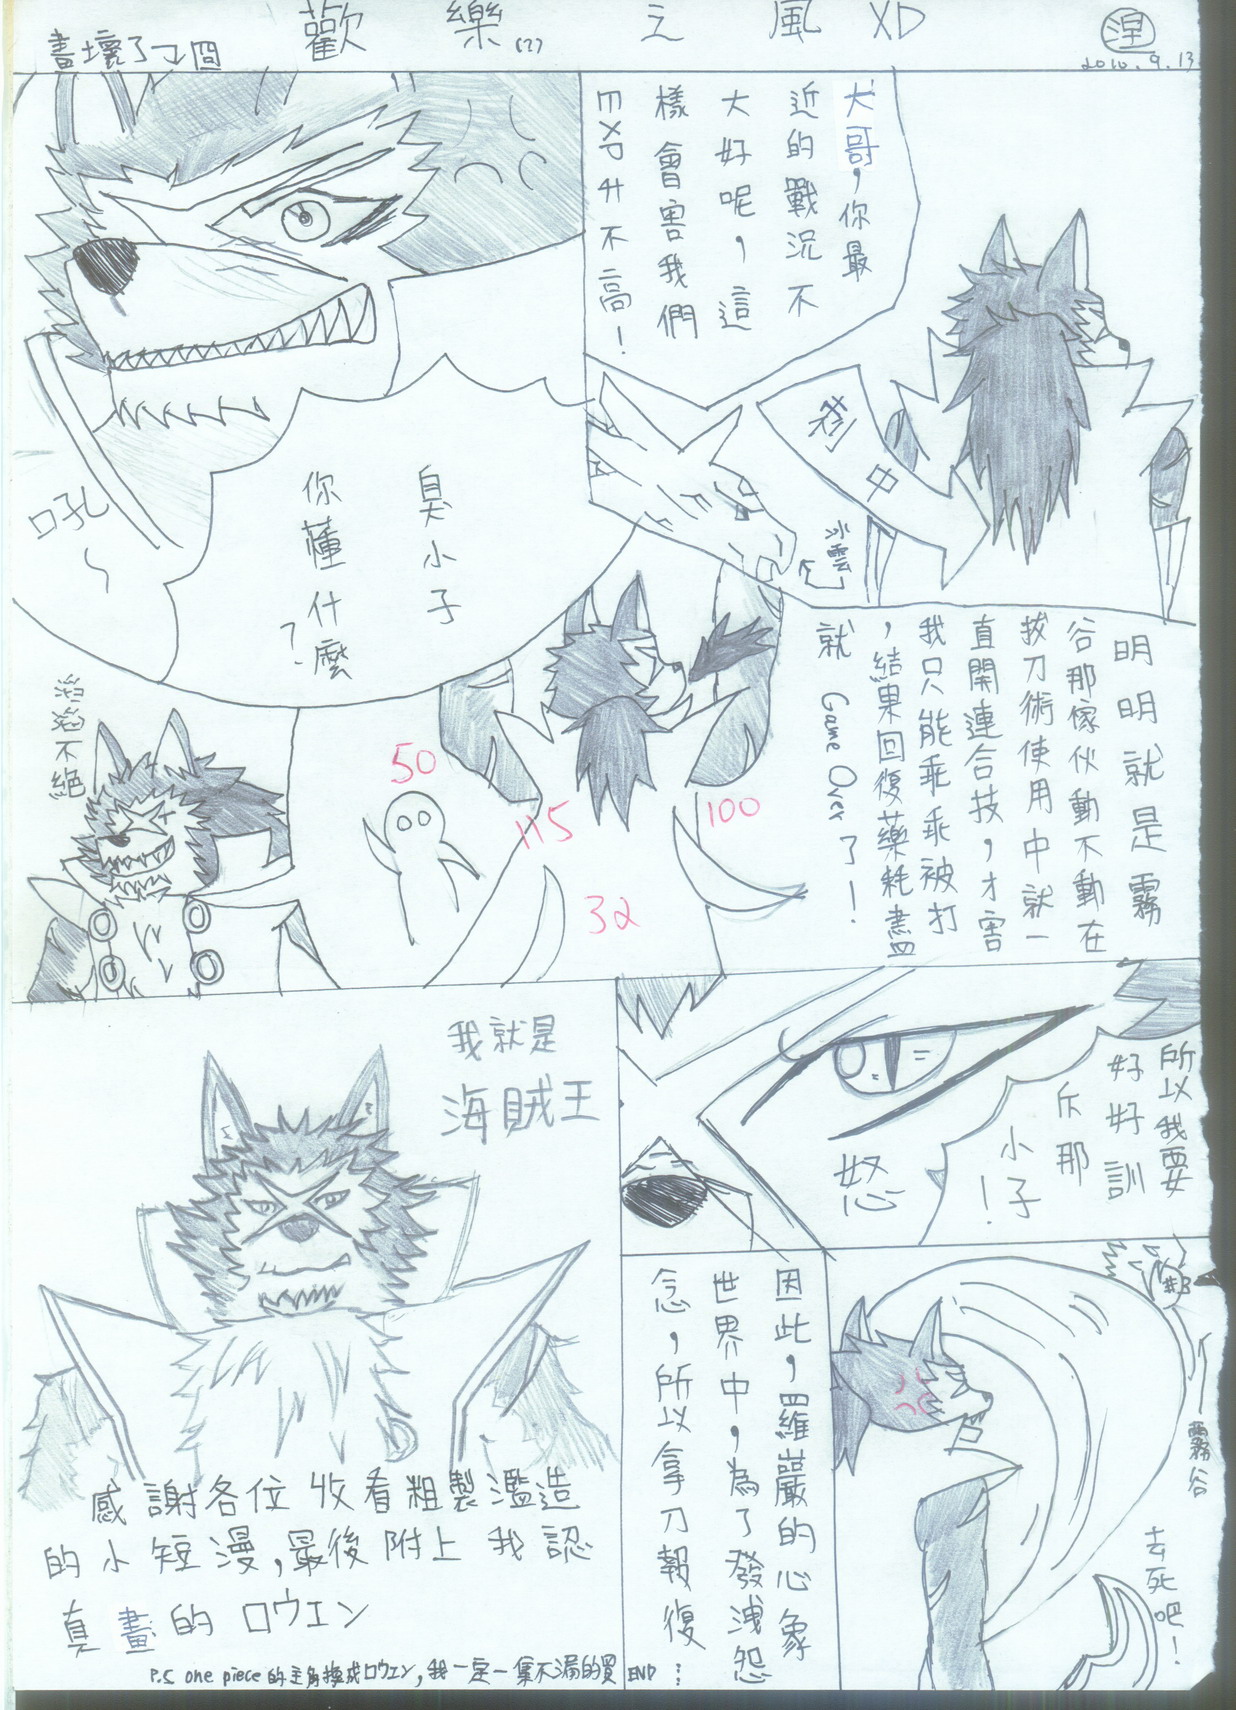 歡樂(?)之風XD
畫壞了
涅
2010.9.13
犬哥,你最
近的戰況不
大好呢,這
樣會害我們
EXP升不高!
刺中
冰雲
臭小子
你懂什麼
?
吼~
明明就是霧
谷那傢伙動不動在
拔刀術使用中就一
直開連合技,才害
我只能乖乖被打
,結果回復藥耗盡
就 Game Over 了!
滔滔不絕
50
115
100
32
所以我要
好好訓
斥那
小子
!
怒
我就是
海賊王
因此,羅巖的心象
世界中,為了發洩怨
念,所以拿刀報復
⋮
霧谷
去死吧!
感謝各位收看粗製濫造
的小短漫,最後附上我認
真畫的ロウエン
P.S one piece的主角換成ロウエン,我一定一集不漏的買
END